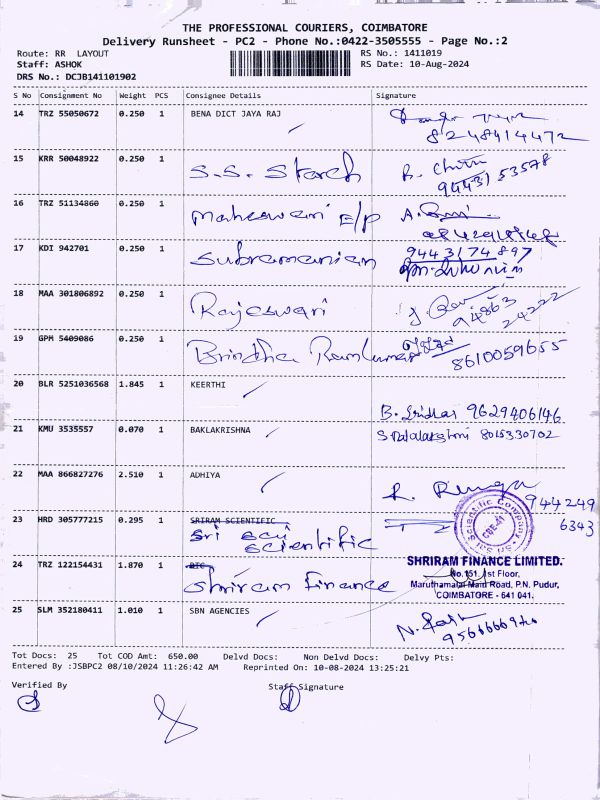 THE PROFESSIONAL COURIERS, COIMBATORE
Delivery Runsheet - PC2 - Phone No.:0422-3505555 - Page No.:2
Route: RR LAYOUT RS No.: 1411019
Staff: ASHOK RS Date: 10-Aug-2024
DRS No.: DCJB141101902
S No Consignment No Weight PCS Consignee Details Signature
14 TRZ 55050672 0.250 1 BENA DICT JAYA RAJ
8248414472
15 KRR 50048922 0.250 1 S.S. Starch
94431 53578
16 TRZ 51134860 0.250 1 Maheswari E/P
17 KDI 942701 0.250 1 Subramanian 9443174897
18 MAA 301806892 0.250 1 Rajeswari
94863 24222
19 GPM 5409086 0.250 1 Brindha Ramkumar 8610059655
20 BLR 5251036568 1.845 1 KEERTHI
B. Sridhar 9629406146
21 KMU 3535557 0.070 1 BAKLAKRISHNA S Rajalakshmi 8015330702
22 MAA 866827276 2.510 1 ADHIYA
944249
6343
23 HRD 305777215 0.295 1 SRIRAM SCIENTIFIC
Sri Sai
Scientific
Scientific Company
CBE-41
24 TRZ 122154431 1.870 1 DIC
Shriram finance
SHRIRAM FINANCE LIMITED.
No.151, 1st Floor,
Maruthamalai Main Road, P.N. Pudur,
COIMBATORE - 641 041.
25 SLM 352180411 1.010 1 SBN AGENCIES
Tot Docs: 25 Tot COD Amt: 650.00 Delvd Docs: Non Delvd Docs: Delvy Pts:
Entered By :JSBPC2 08/10/2024 11:26:42 AM Reprinted On: 10-08-2024 13:25:21
Verified By Staff Signature